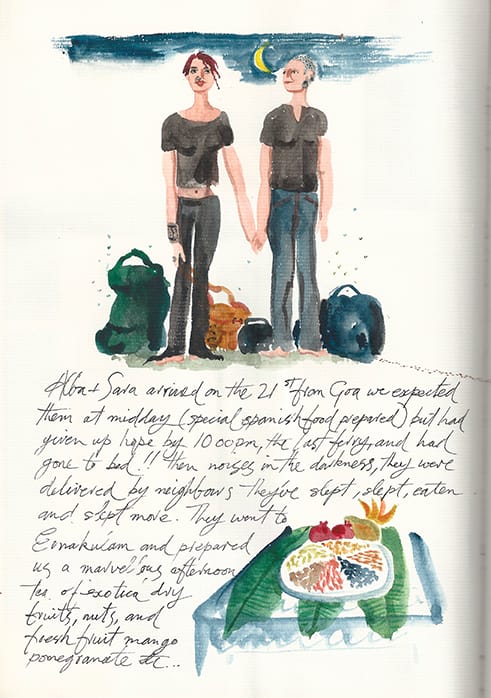 Alba + Sara arrived on the 21st from Goa we expected
them at midday (special spanish food prepared) but had
given up hope by 10 oopm, the last ferry, and had
gone to bed!! Then noises in the darkness, they were
delivered by neighbours They've slept, slept, eaten
and slept more. They went to
Ernakulam and prepared
us a marvellous afternoon
tea of exotica, dry
fruits, nuts, and
fresh fruit mango
pomegranate etc...